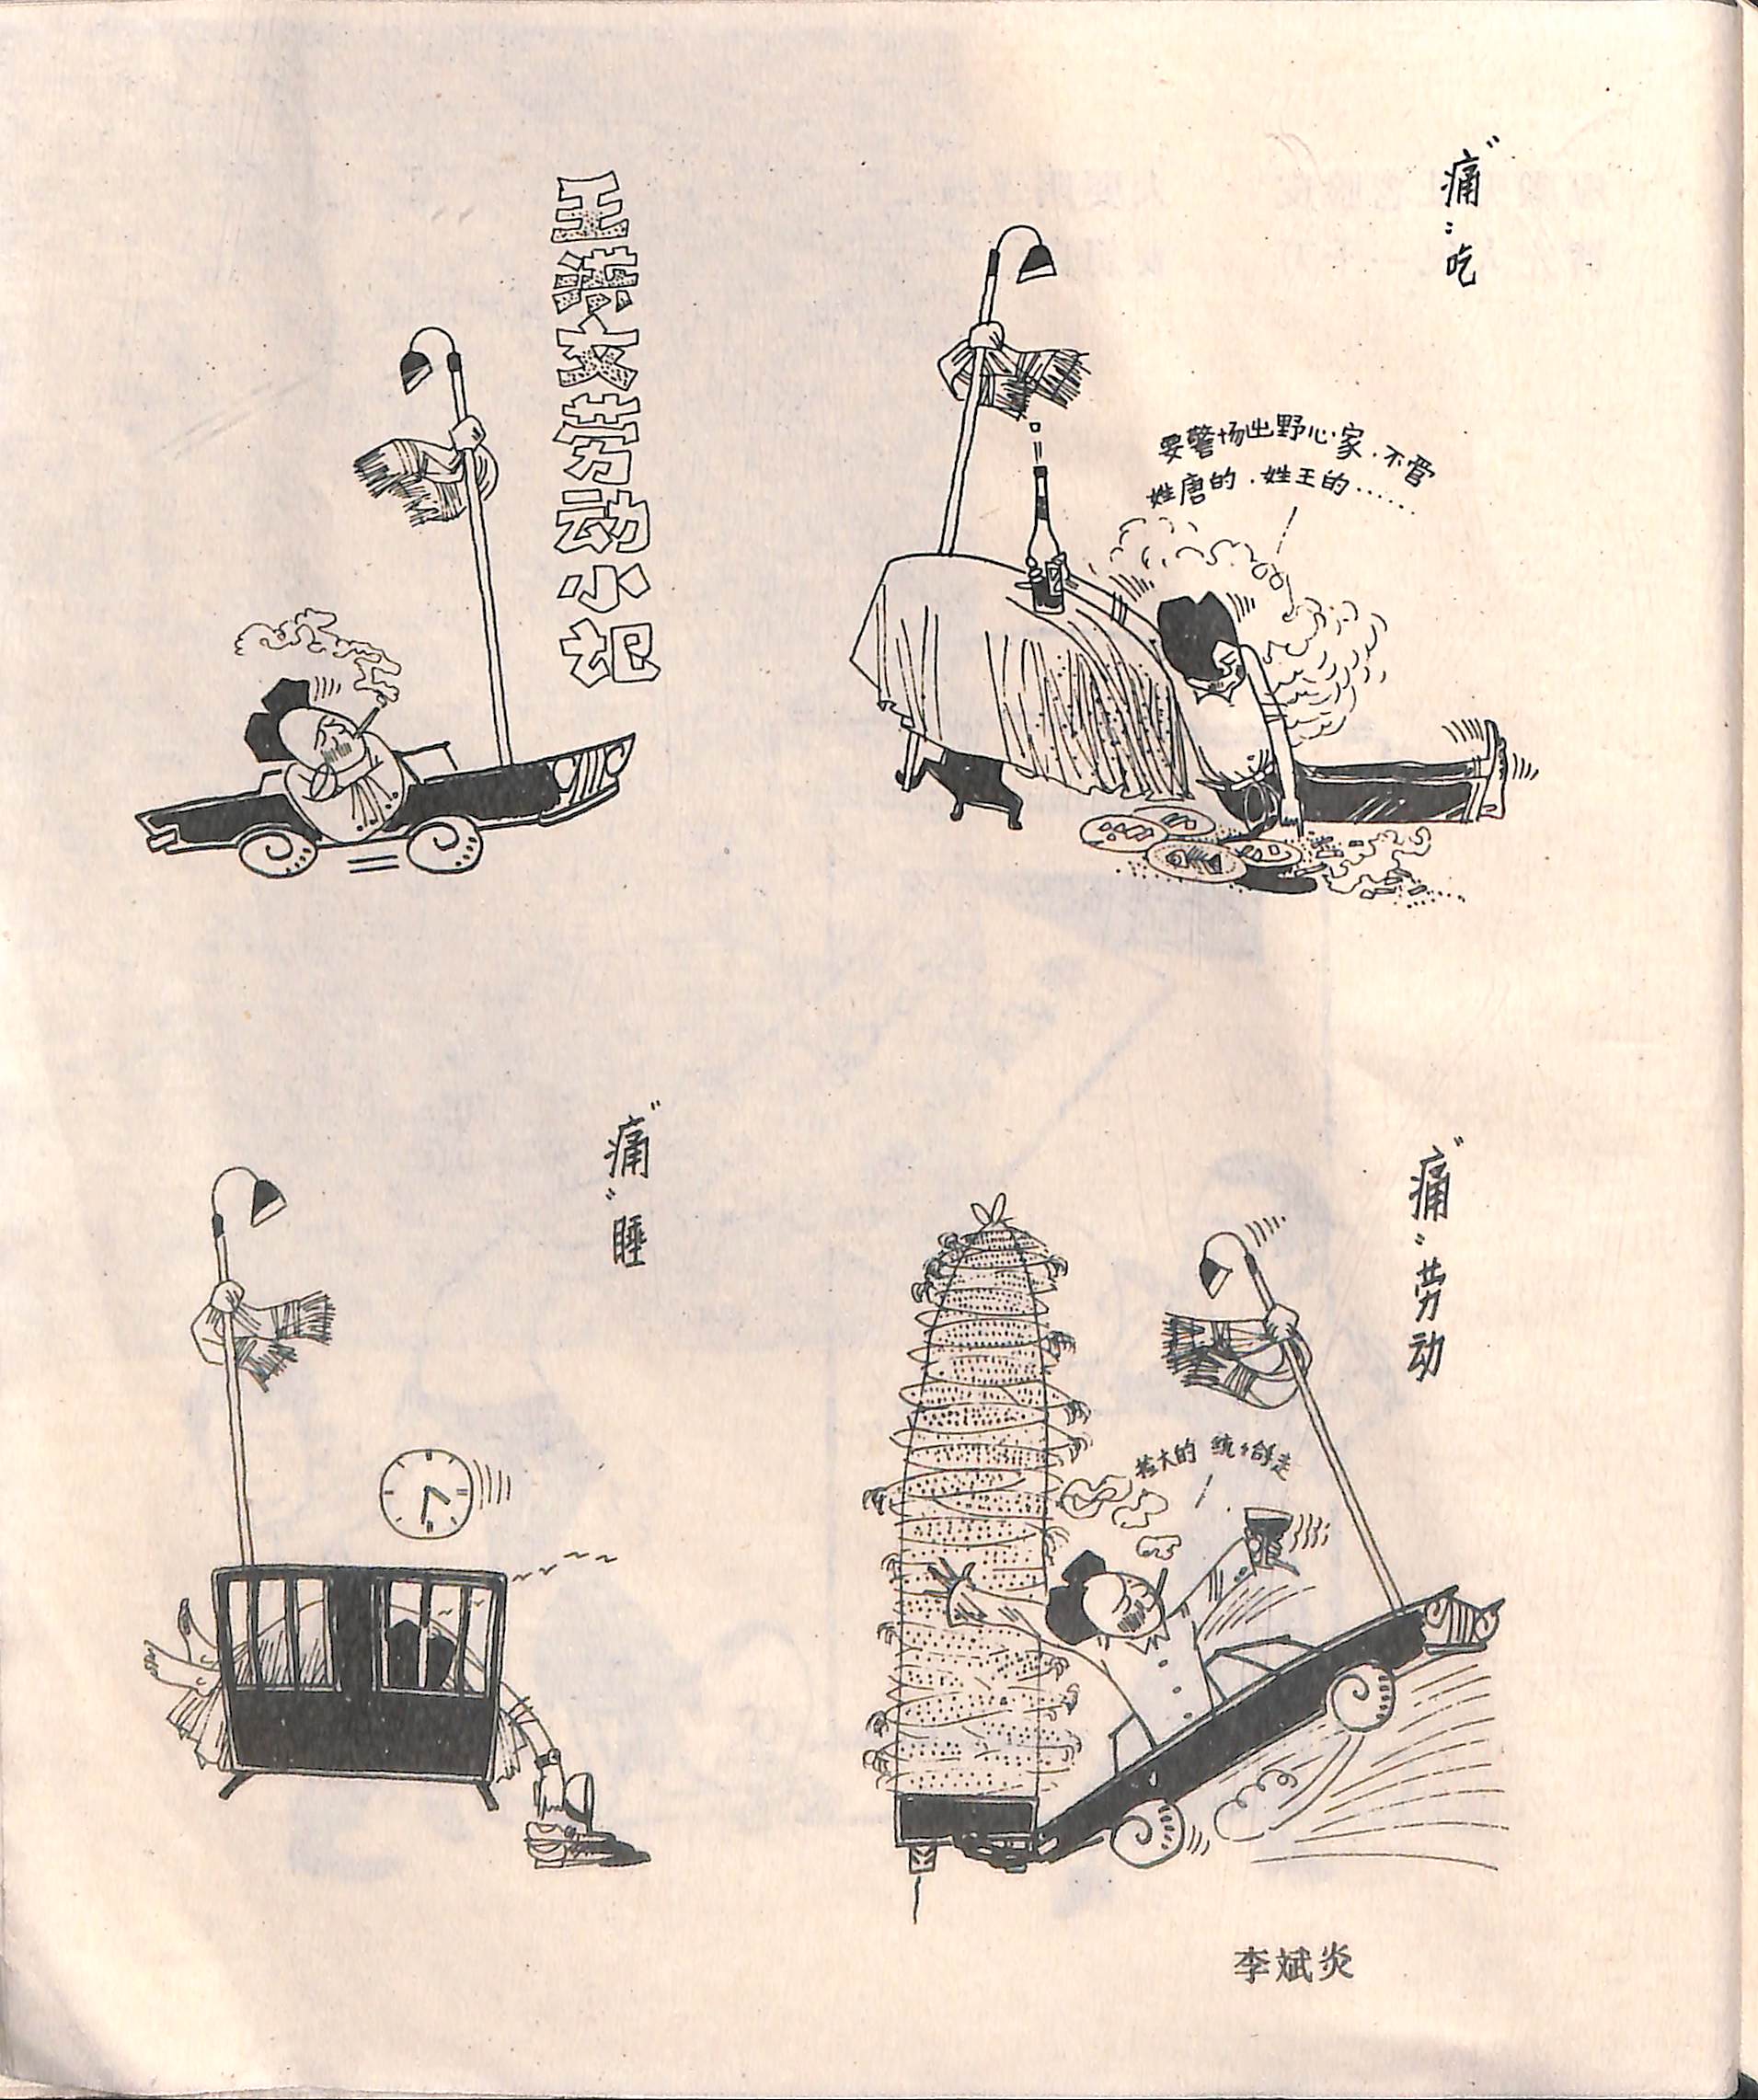 王洪文劳动小记
"痛"吃
要警惕出野心家.不管
姓唐的.姓王的......
"痛"睡
"痛"劳动
大的 统统走
李斌炎